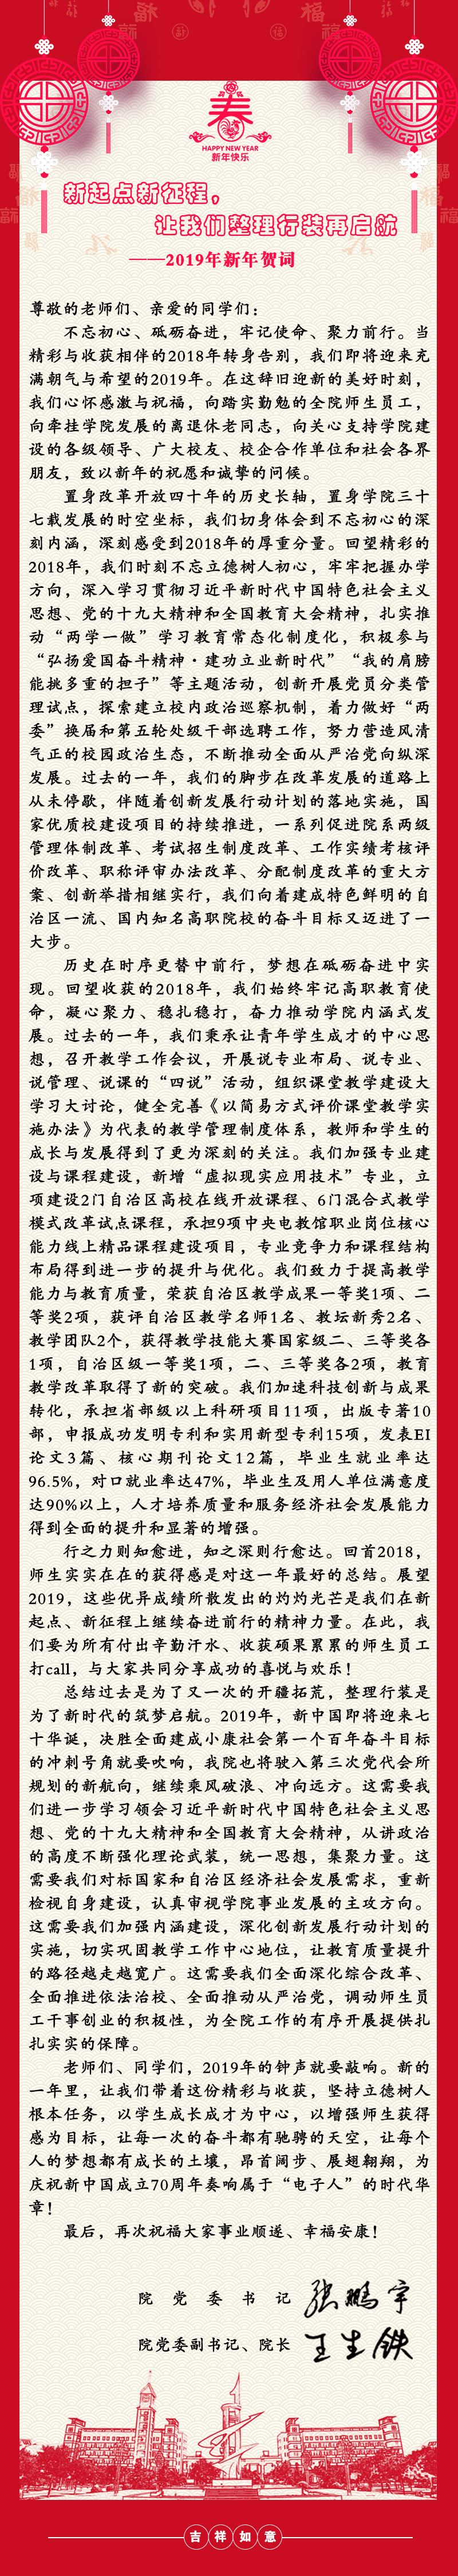 春
HAPPY NEW YEAR
新年快乐
新起点新征程，
让我们整理行装再启航
——2019年新年贺词
尊敬的老师们、亲爱的同学们：
不忘初心、砥砺奋进，牢记使命、聚力前行。当
精彩与收获相伴的2018年转身告别，我们即将迎来充
满朝气与希望的2019年。在这辞旧迎新的美好时刻，
我们心怀感激与祝福，向踏实勤勉的全院师生员工，
向牵挂学院发展的离退休老同志，向关心支持学院建
设的各级领导、广大校友、校企合作单位和社会各界
朋友，致以新年的祝愿和诚挚的问候。
置身改革开放四十年的历史长轴，置身学院三十
七载发展的时空坐标，我们切身体会到不忘初心的深
刻内涵，深刻感受到2018年的厚重分量。回望精彩的
2018年，我们时刻不忘立德树人初心，牢牢把握办学
方向，深入学习贯彻习近平新时代中国特色社会主义
思想、党的十九大精神和全国教育大会精神，扎实推
动“两学一做”学习教育常态化制度化，积极参与
“弘扬爱国奋斗精神·建功立业新时代”“我的肩膀
能挑多重的担子”等主题活动，创新开展党员分类管
理试点，探索建立校内政治巡察机制，着力做好“两
委”换届和第五轮处级干部选聘工作，努力营造风清
气正的校园政治生态，不断推动全面从严治党向纵深
发展。过去的一年，我们的脚步在改革发展的道路上
从未停歇，伴随着创新发展行动计划的落地实施，国
家优质校建设项目的持续推进，一系列促进院系两级
管理体制改革、考试招生制度改革、工作实绩考核评
价改革、职称评审办法改革、分配制度改革的重大方
案、创新举措相继实行，我们向着建成特色鲜明的自
治区一流、国内知名高职院校的奋斗目标又迈进了一
大步。
历史在时序更替中前行，梦想在砥砺奋进中实
现。回望收获的2018年，我们始终牢记高职教育使
命，凝心聚力、稳扎稳打，奋力推动学院内涵式发
展。过去的一年，我们秉承让青年学生成才的中心思
想，召开教学工作会议，开展说专业布局、说专业、
说管理、说课的“四说”活动，组织课堂教学建设大
学习大讨论，健全完善《以简易方式评价课堂教学实
施办法》为代表的教学管理制度体系，教师和学生的
成长与发展得到了更为深刻的关注。我们加强专业建
设与课程建设，新增“虚拟现实应用技术”专业，立
项建设2门自治区高校在线开放课程、6门混合式教学
模式改革试点课程，承担9项中央电教馆职业岗位核心
能力线上精品课程建设项目，专业竞争力和课程结构
布局得到进一步的提升与优化。我们致力于提高教学
能力与教育质量，荣获自治区教学成果一等奖1项、二
等奖2项，获评自治区教学名师1名、教坛新秀2名、
教学团队2个，获得教学技能大赛国家级二、三等奖各
1项，自治区级一等奖1项，二、三等奖各2项，教育
教学改革取得了新的突破。我们加速科技创新与成果
转化，承担省部级以上科研项目11项，出版专著10
部，申报成功发明专利和实用新型专利15项，发表EI
论文3篇、核心期刊论文12篇，毕业生就业率达
96.5%，对口就业率达47%，毕业生及用人单位满意度
达90%以上，人才培养质量和服务经济社会发展能力
得到全面的提升和显著的增强。
行之力则知愈进，知之深则行愈达。回首2018，
师生实实在在的获得感是对这一年最好的总结。展望
2019，这些优异成绩所散发出的灼灼光芒是我们在新
起点、新征程上继续奋进前行的精神力量。在此，我
们要为所有付出辛勤汗水、收获硕果累累的师生员工
打call，与大家共同分享成功的喜悦与欢乐！
总结过去是为了又一次的开疆拓荒，整理行装是
为了新时代的筑梦启航。2019年，新中国即将迎来七
十华诞，决胜全面建成小康社会第一个百年奋斗目标
的冲刺号角就要吹响，我院也将驶入第三次党代会所
规划的新航向，继续乘风破浪、冲向远方。这需要我
们进一步学习领会习近平新时代中国特色社会主义思
想、党的十九大精神和全国教育大会精神，从讲政治
的高度不断强化理论武装，统一思想，集聚力量。这
需要我们对标国家和自治区经济社会发展需求，重新
检视自身建设，认真审视学院事业发展的主攻方向。
这需要我们加强内涵建设，深化创新发展行动计划的
实施，切实巩固教学工作中心地位，让教育质量提升
的路径越走越宽广。这需要我们全面深化综合改革、
全面推进依法治校、全面推动从严治党，调动师生员
工干事创业的积极性，为全院工作的有序开展提供扎
扎实实的保障。
老师们、同学们，2019年的钟声就要敲响。新的
一年里，让我们带着这份精彩与收获，坚持立德树人
根本任务，以学生成长成才为中心，以增强师生获得
感为目标，让每一次的奋斗都有驰骋的天空，让每个
人的梦想都有成长的土壤，昂首阔步、展翅翱翔，为
庆祝新中国成立70周年奏响属于“电子人”的时代华
章！
最后，再次祝福大家事业顺遂、幸福安康！
院党委书记 张鹏宇
院党委副书记、院长 王生铁
吉祥如意